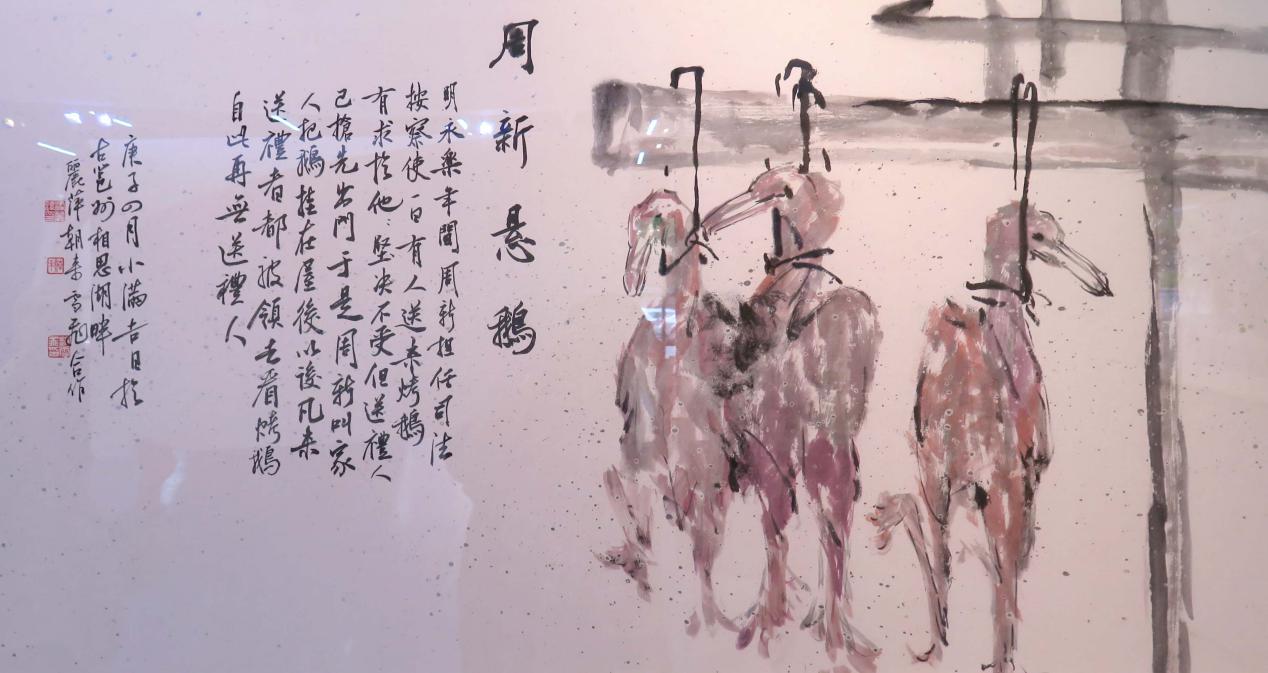 周新悬鹅
明永樂年間周新担任司法
按察使一日有人送来烤鵝
有求於他坚决不受但送禮人
已搶先出門于是周新叫家
人把鵝挂在屋後以後凡来
送禮者都被領去看烤鵝
自此再無送禮人
庚子四月小滿吉日於
古邕州相思湖畔
麗萍朝来雪飛合作